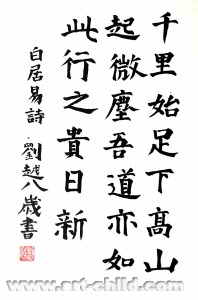 千里始足下高山
起微塵吾道亦如
此行之貴日新
白居易詩
劉越八歲書
http://www.art-child.com